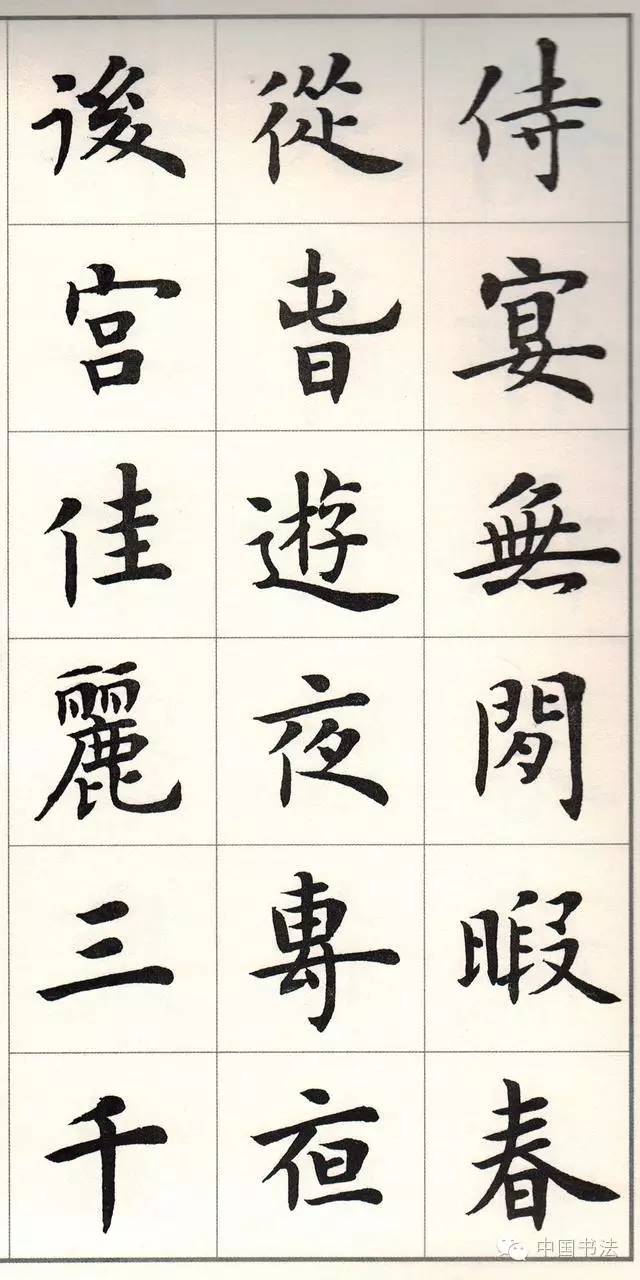 侍宴無閒暇春
從旾遊夜專亱
後宮佳麗三千
中国书法